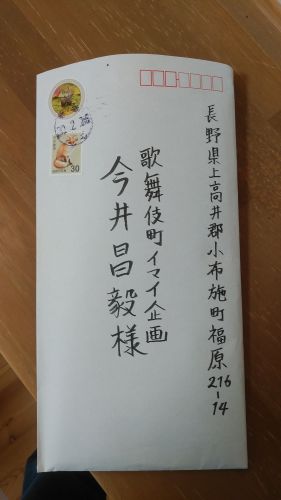 長野県上高井郡小布施町福原216-14
歌舞伎町イマイ企画
今井昌毅様
30